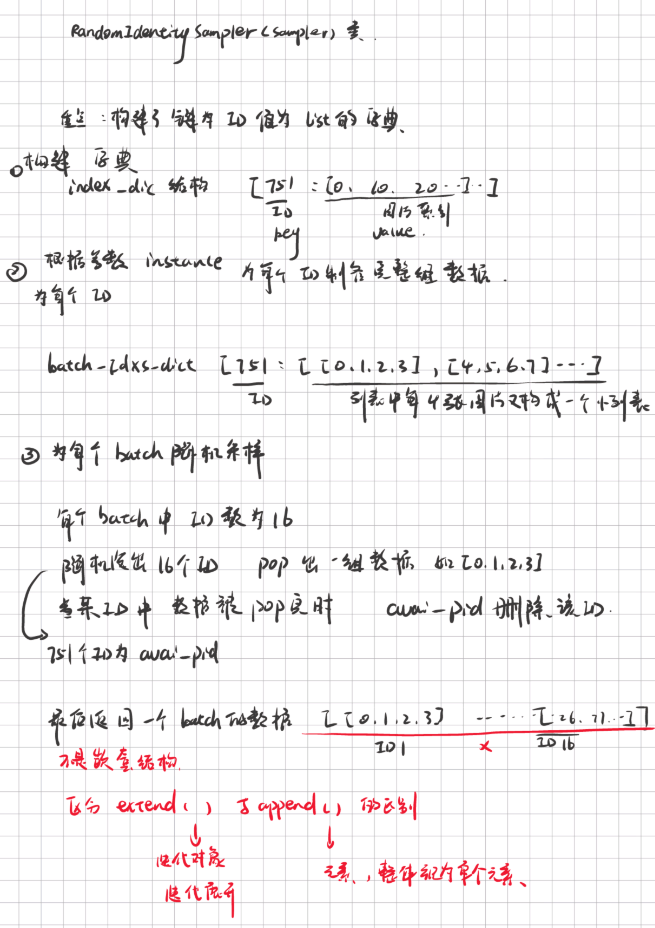 RandomIdentity Sampler (Sampler) 类.
重点:构建了 键为 ID 值为 list 的 字典.
①构建 字典
index_dic 结构 [751 : [0. 10. 20...]..]
ID 图片索引
key value.
② 根据参数 instance 为每个 ID 制备完整组数据.
为每个 ID
batch-idxs-dict [751: [[0.1.2.3], [4.5.6.7]....]
ID 列表中每4张图片又构成一个小列表
③ 为每个 batch 随机采样
每个 batch 中 ID 数为 16
随机选出 16个ID pop 出 一组数据 如[0.1.2.3]
当某ID中 数据被pop完时 avai-pid 删除 该ID.
751个ID为 avai-pid
最后返回一个 batch 的数据 [[0.1.2.3] ...... [26. 27...]]
ID1 × ID16
不是嵌套结构.
区分 extend() 与 append() 的区别
迭代对象 元素, 整体视为单个元素.
迭代展开